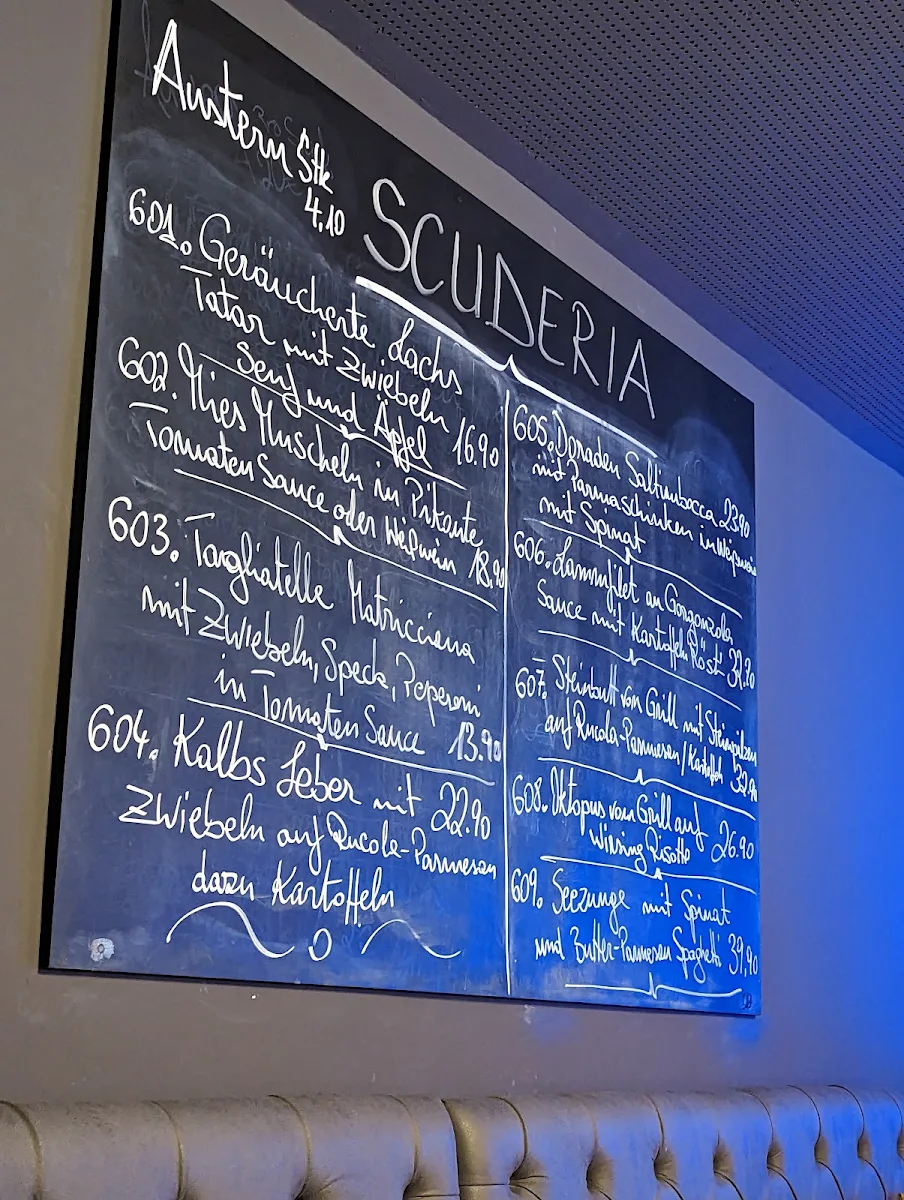 Austern Stk
4,10
SCUDERIA
601. Geräucherte Lachs
Tatar mit Zwiebeln
Senf und Äpfel 16.90
602. Mies Muscheln in Pikante
Tomaten Sauce oder Weißwein 18,90
603. Tagliatelle Matricciana
mit Zwiebeln, Speck, Peperoni
in Tomaten Sauce 13.90
604. Kalbs Leber mit 22.90
Zwiebeln auf Rucola-Parmesan
dazu Kartoffeln
605. Doraden Saltimbocca 23.90
mit Parmaschinken in Weißwein
mit Spinat
606. Lammfilet an Gorgonzola
Sauce mit Kartoffeln Rösti
607. Steinbutt vom Grill mit Steinpilzen
auf Rucola-Parmesan/Kartoffeln 32.90
608. Oktopus vom Grill auf 26.90
Wirsing Risotto
609. Seezunge mit Spinat
und Butter-Parmesan Spaghetti 39,90